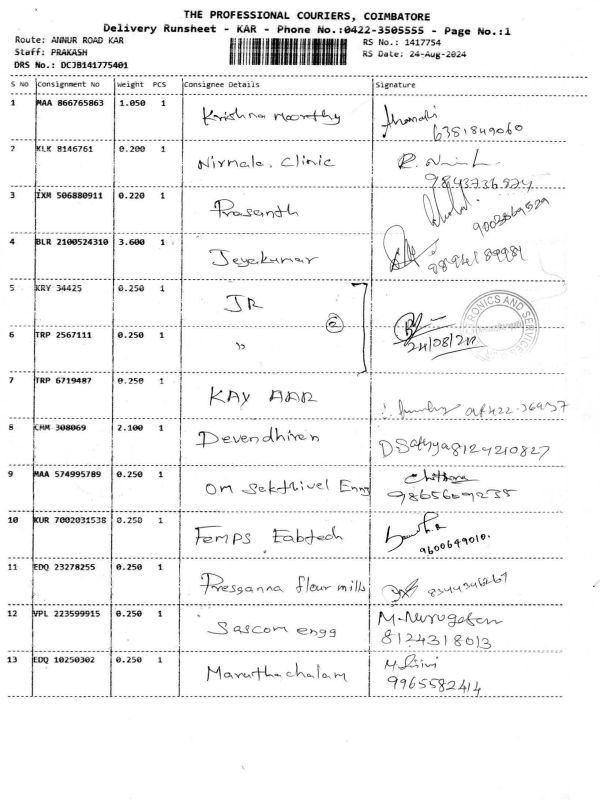 THE PROFESSIONAL COURIERS, COIMBATORE
Delivery Runsheet - KAR - Phone No.:0422-3505555 - Page No.:1
Route: ANNUR ROAD KAR RS No.: 1417754
Staff: PRAKASH RS Date: 24-Aug-2024
DRS No.: DCJB141775401
S NO Consignment No Weight PCS Consignee Details Signature
1 MAA 866765863 1.050 1 Krishna moorthy
6381849060
2 KLK 8146761 0.200 1 Nirmala. Clinic
9843736524
3 IXM 506880911 0.220 1 Prasanth
9003869529
4 BLR 2100524310 3.600 1 Jeyakumar
9894189981
5 KRY 34425 0.250 1 JR
2
6 TRP 2567111 0.250 1 "
24/08/24
7 TRP 6719487 0.250 1 KAY AAR
8 CHM 308069 2.100 1 Devendhiren
DSathya 8124210827
9 MAA 574995789 0.250 1 Om Sakthivel Engg Chithra
9865609235
10 KUR 7002031538 0.250 1 Femps Fabtech
9600649010.
11 EDQ 23278255 0.250 1 Presganna flour mills
12 VPL 223599915 0.250 1 Sascom engg M. Murugesan
8124318013
13 EDQ 10250302 0.250 1 Maruthachalam
9965582414